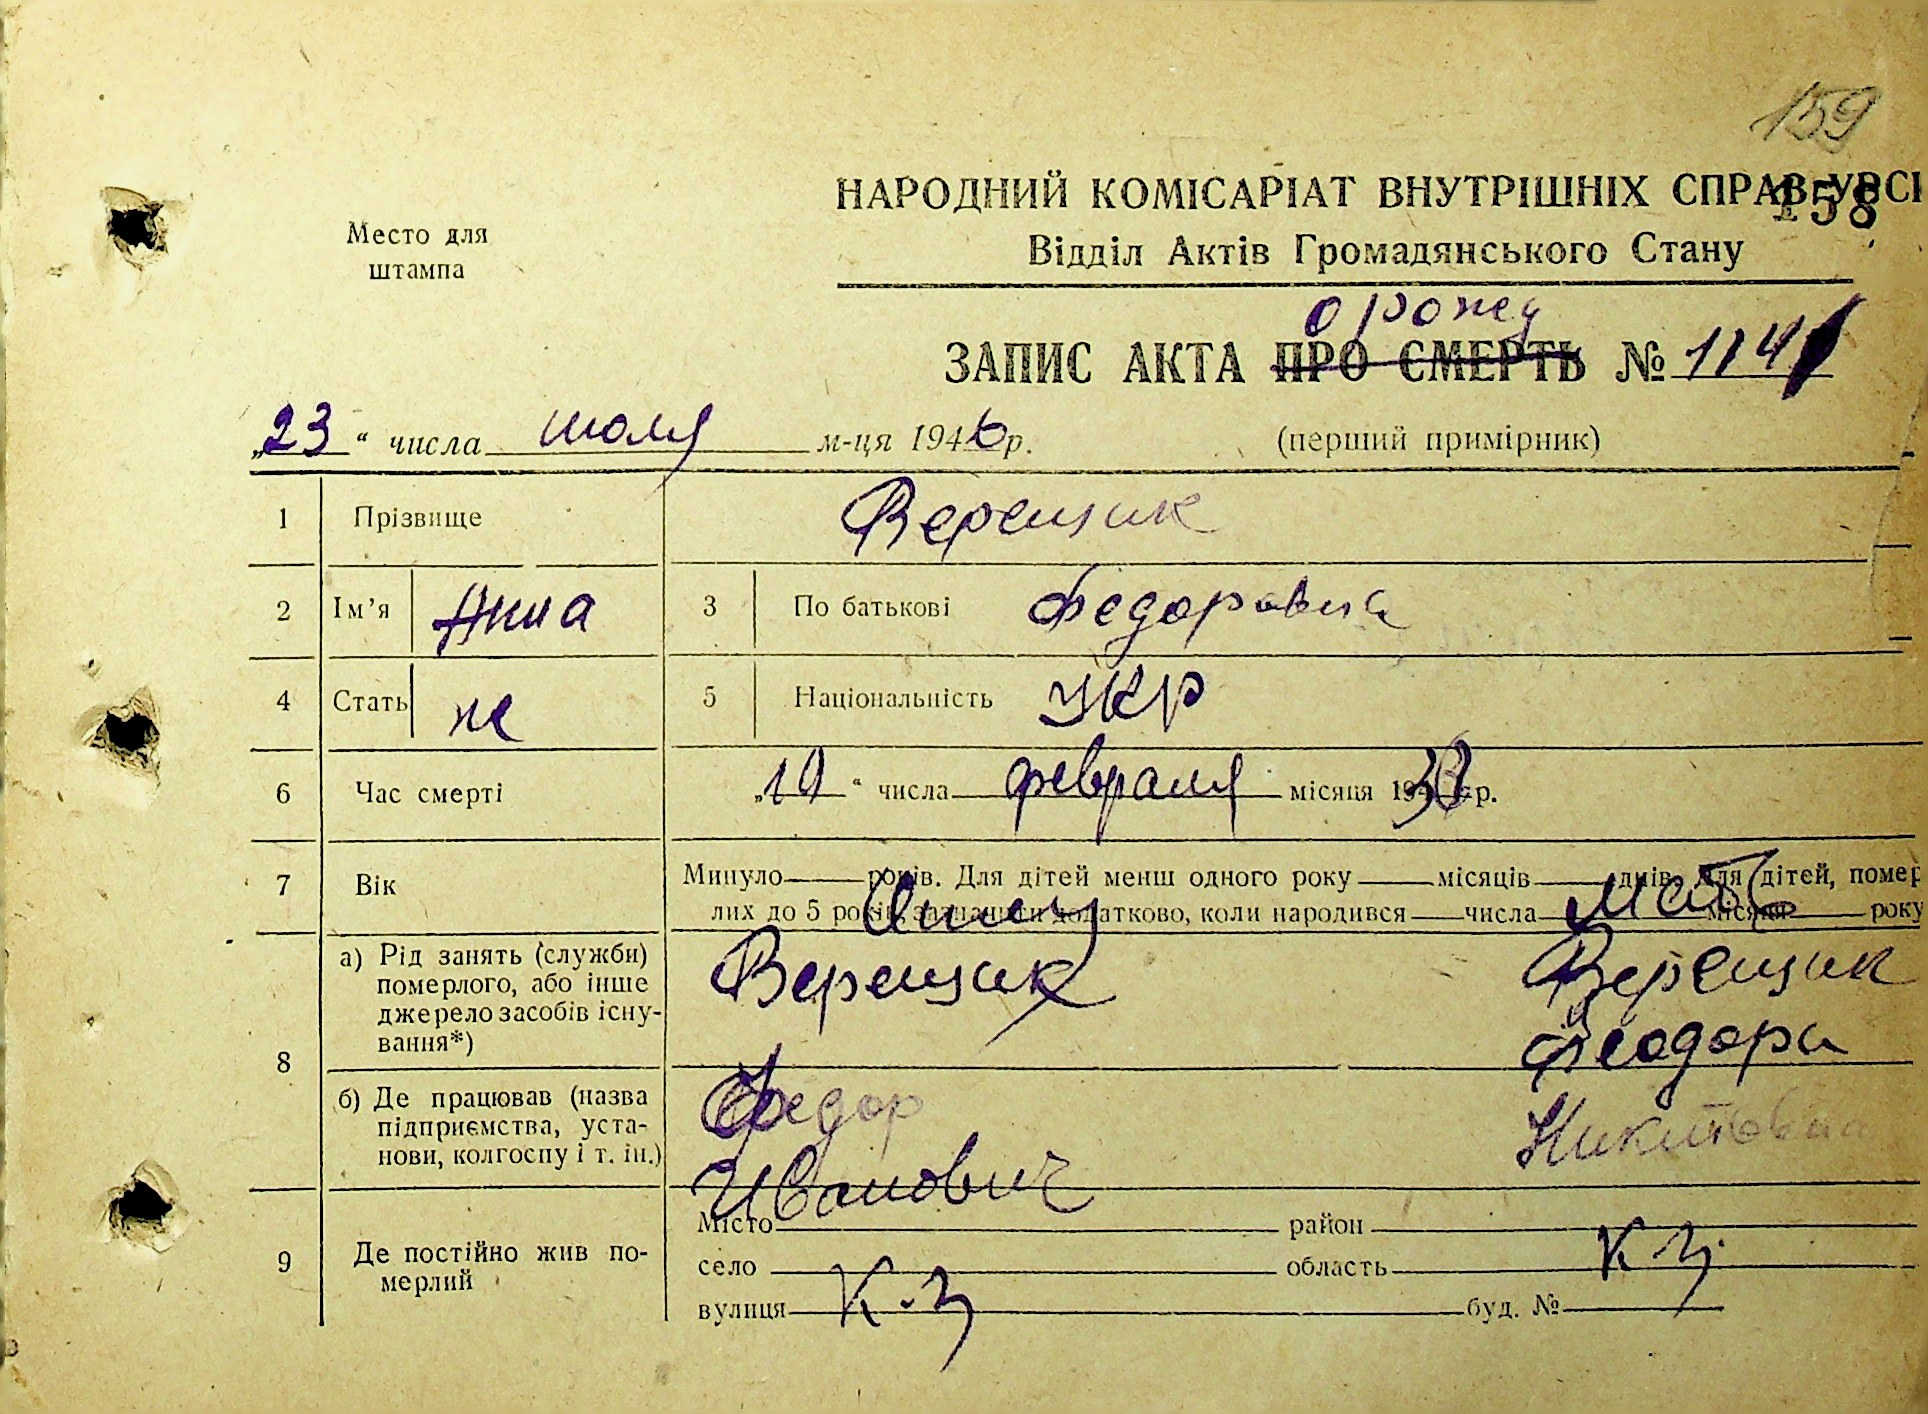 159
НАРОДНИЙ КОМІСАРІАТ ВНУТРІШНІХ СПРАВ УРСР
158
Место для
штампа
Відділ Актів Громадянського Стану
о рожд
ЗАПИС АКТА ПРО СМЕРТЬ № 114
„23" числа июля м-ця 1946 р.
(перший примірник)
1 Прізвище Верещик
2 Ім'я Анна 3 По батькові Федоровна
4 Стать ж 5 Національність укр
6 Час смерті „19" числа февраля місяця 1938 р.
7 Вік Минуло років. Для дітей менш одного року місяців днів. Для дітей, помер
лих до 5 років, зазначити додатково, коли народився числа місяця року
Отец Мать
8 а) Рід занять (служби)
померлого, або інше
джерело засобів існу-
вання*)
Верещик Верещик
Феодора
б) Де працював (назва
підприємства, уста-
нови, колгоспу і т. ін.)
Федор Никитовна
Иванович
9 Де постійно жив по-
мерлий
Місто район
село область к-з
вулиця к-з буд. №